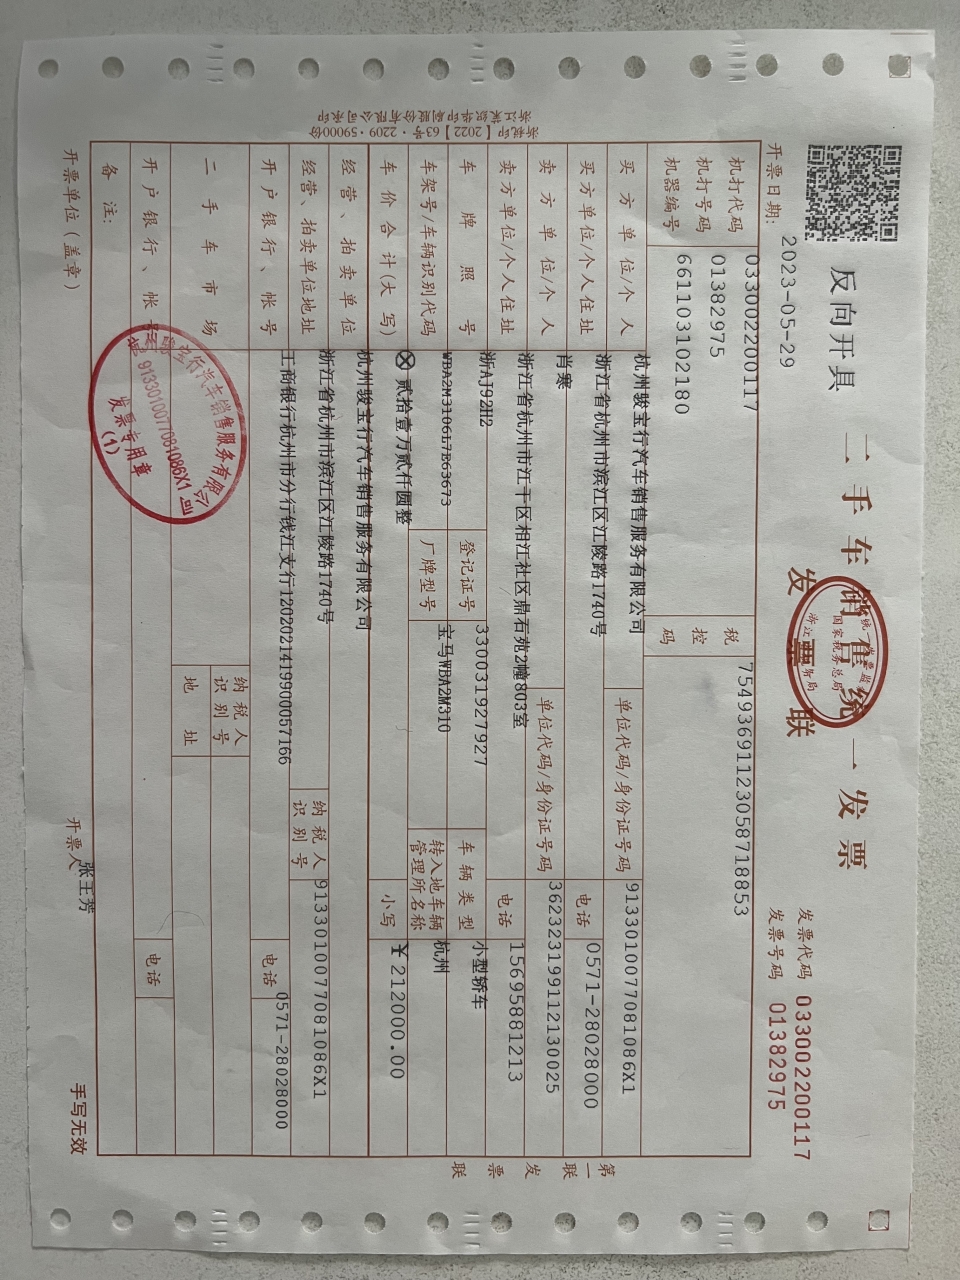 反向开具
二手车销售统一发票
发票联
发票代码 033002200117
发票号码 01382975
开票日期: 2023-05-29
机打代码 033002200117
机打号码 01382975
机器编号 661103102180
税控码 75493691123058718853
买方单位/个人 杭州骏宝行汽车销售服务有限公司 单位代码/身份证号码 9133010077081086X1
买方单位/个人住址 浙江省杭州市滨江区江陵路1740号 电话 0571-28028000
卖方单位/个人 肖寒 单位代码/身份证号码 362323199112130025
卖方单位/个人住址 浙江省杭州市江干区相江社区鼎石苑2幢803室 电话 15695881213
车牌照号 浙AJ92H2 登记证号 330031927927 车辆类型 小型轿车
车架号/车辆识别代码 WBA2M3106L7B63673 厂牌型号 宝马WBA2M310 转入地车辆管理所名称 杭州
车价合计(大写) ⊗贰拾壹万贰仟圆整 小写 ¥212000.00
经营、拍卖单位 杭州骏宝行汽车销售服务有限公司
经营、拍卖单位地址 浙江省杭州市滨江区江陵路1740号 纳税人识别号 9133010077081086X1
开户银行、帐号 工商银行杭州市分行钱江支行1202021419900057166 电话 0571-28028000
二手车市场 纳税人识别号
地址
开户银行、帐号 电话
备注:
开票单位(盖章) 开票人 张王芳 手写无效
骏宝行汽车销售服务有限公司
9133010077081086X1
发票专用章
(1)
国家税务总局
第一联 发票联
浙税印【2022】63号·2209·59000份